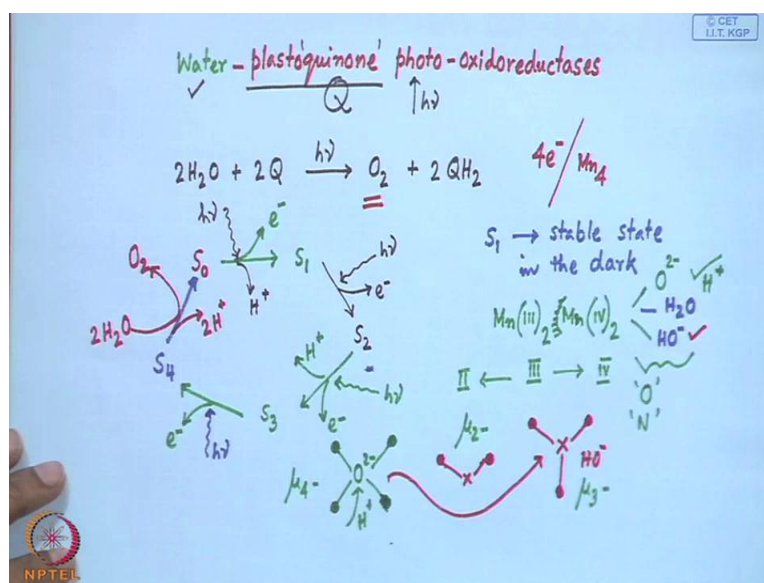 © CET
I.I.T. KGP
Water - plastoquinone photo-oxidoreductases
Q
hν
2H₂O + 2Q hν → O₂ + 2QH₂
4e⁻/Mn₄
hν
e⁻
O₂
S₀
S₁
hν
H⁺
e⁻
2H₂O
2H⁺
S₂
S₄
H⁺
hν
e⁻
S₃
e⁻
hν
S₁ → stable state
in the dark
Mn(III)₂ Mn(IV)₂
O²⁻ H⁺
H₂O
HO⁻
II ← III → IV
'O'
'N'
μ₄-
O²⁻
H⁺
μ₂-
X
X
HO⁻
μ₃-
NPTEL